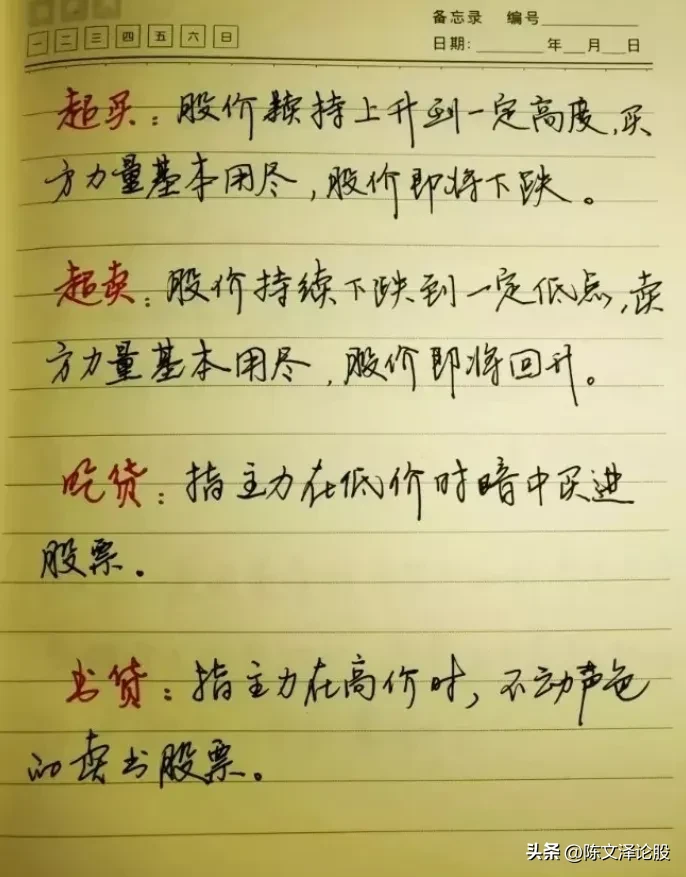 备忘录 编号
一 二 三 四 五 六 日
日期： 年 月 日
超买：股价续持上升到一定高度，买
方力量基本用尽，股价即将下跌。
超卖：股价持续下跌到一定低点，卖
方力量基本用尽，股价即将回升。
吃货：指主力在低价时暗中买进
股票。
出货：指主力在高价时，不动声色
的卖出股票。
头条 @陈文泽论股